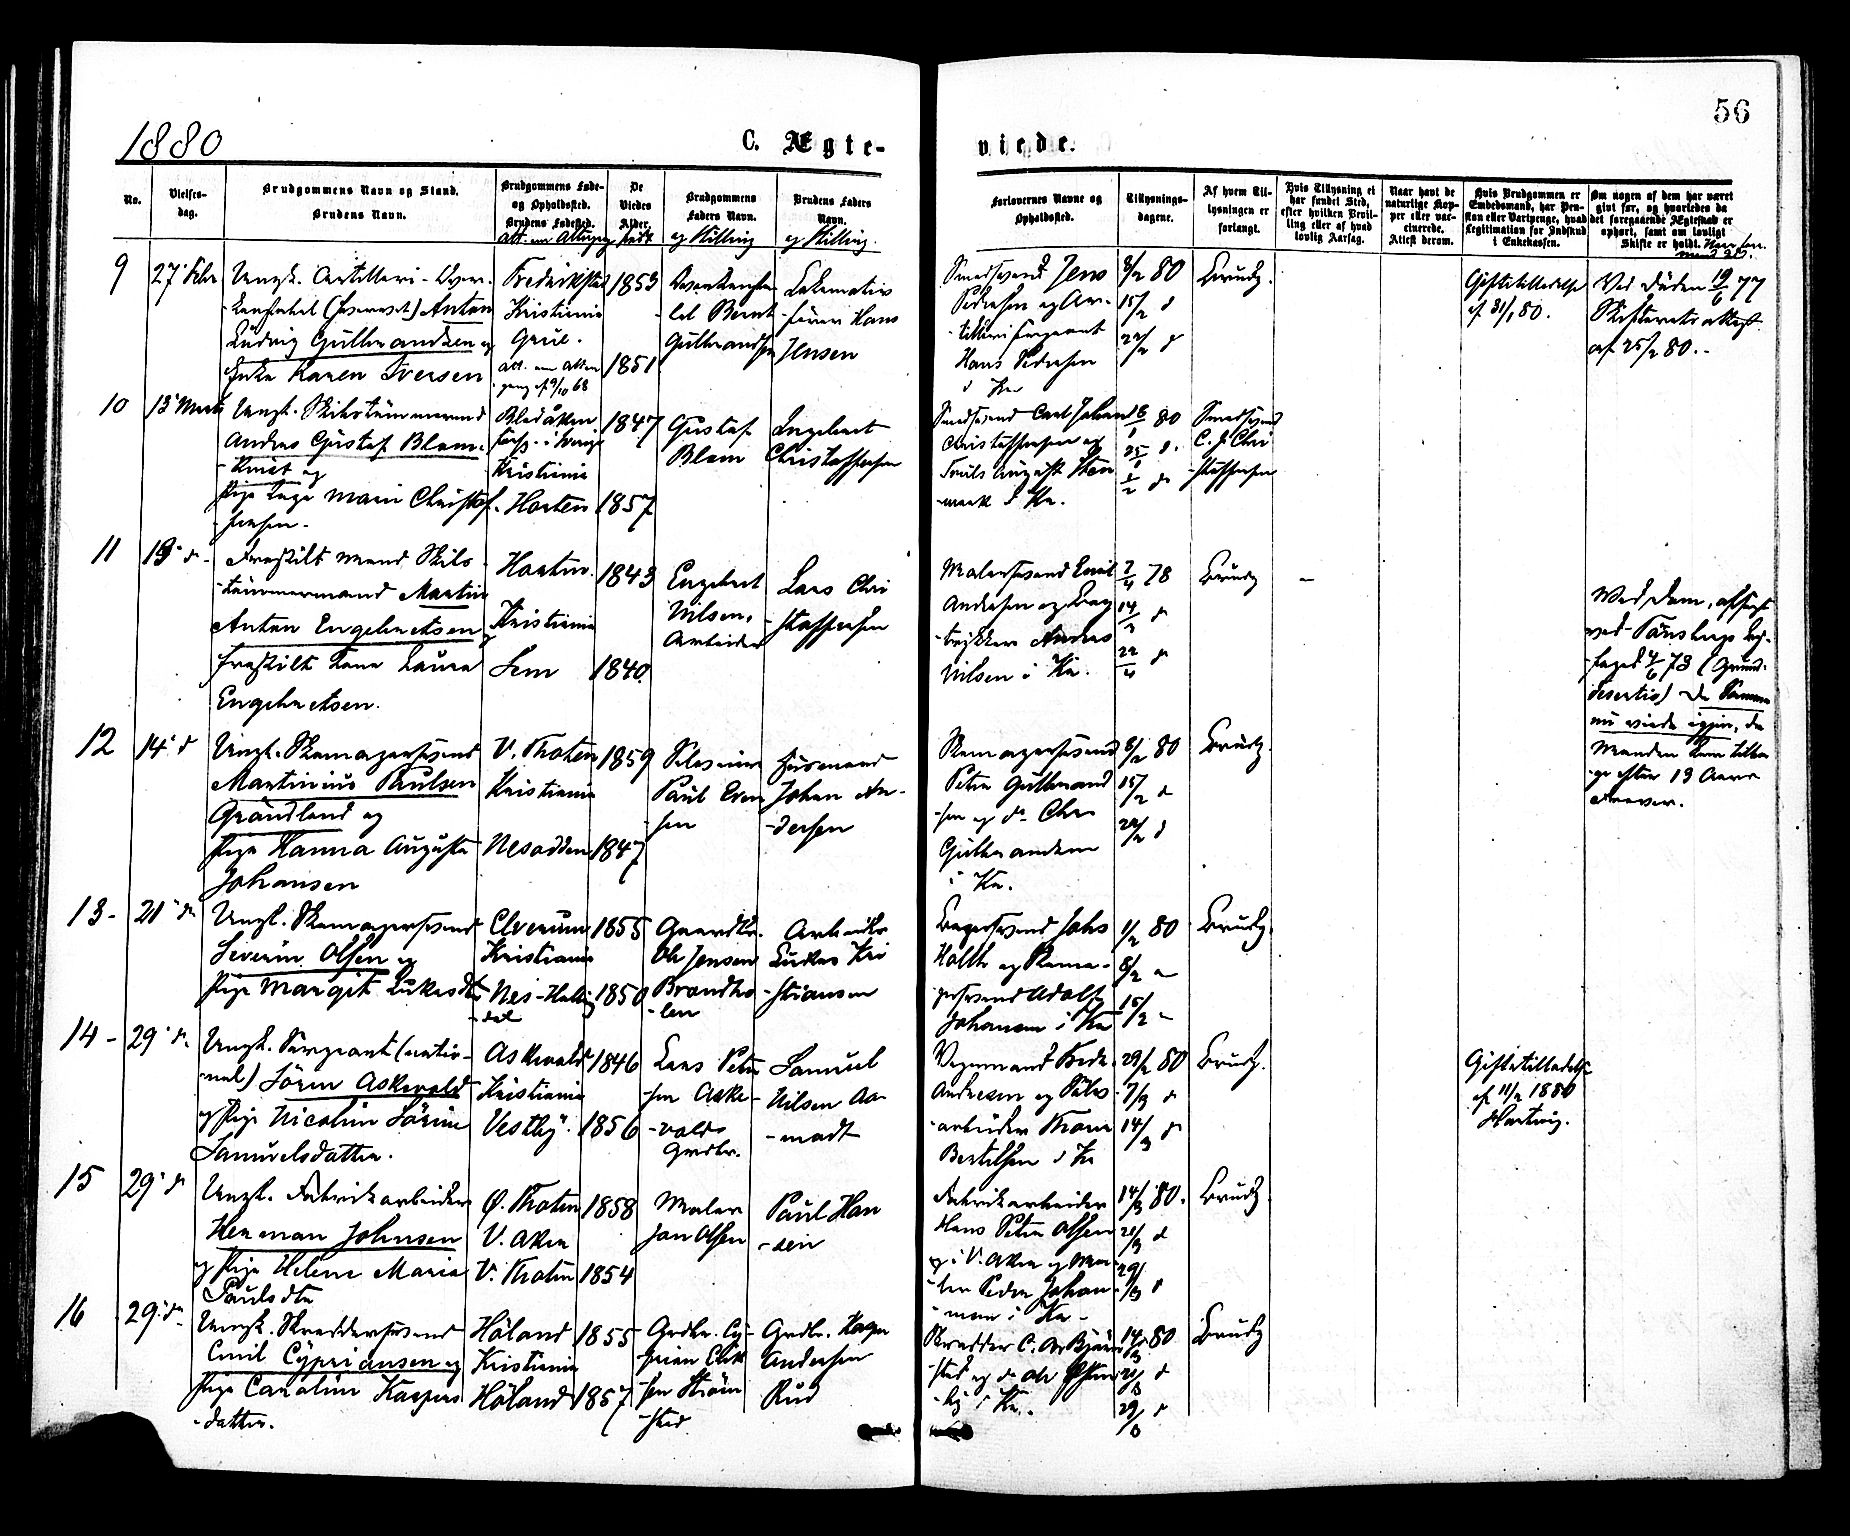 1880
C. Ægte-
viede.
56
No.
Vielses-
dag.
Brudgommens Navn og Stand.
Brudens Navn.
Brudgommens Føde-
og Opholdssted.
Brudens Fødested.
De
Viedes
Alder.
født
Brudgommens
Faders Navn.
og Stilling
Brudens Faders
Navn.
og Stilling.
Forlovernes Navne og
Opholdssted.
Tillysnings-
dagene.
Af hvem Til-
lysningen er
forlangt.
Hvis Tillysning ei
har fundet Sted,
efter hvilken Bevil-
ling eller af hvad
lovlig Aarsag.
Naar havt de
naturlige Kop-
per eller vac-
cinerede.
Attest derom.
Hvis Brudgommen er
Embedsmand, har Pen-
sion eller Vartpenge, hvad
Legitimation for Indskud
i Enkekassen.
Om nogen af dem har været
gift før, og hvorledes da
det foregaaende Ægteskab er
ophørt, samt om lovligt
Skifte er holdt.
9
27 Febr
Ungk. Artilleri-
Anton
Ludvig Gulbrandsen og
Enke Karen Iversen
Fredrikstad
Kristiania
Grue.
1853
1851
Bernt
Gulbrandsen
Lokomotiv
-fører Hans
Jensen
Smedsvend Jens
Pedersen og Ar-
-tilleri sergeant
Hans Pedersen
i Kra
8/2 80
15/2 d
22/2 d
Brudg.
Giftetilladelse
af 31/1 80.
Ved Døden 19/6 77
Skifteretsattest
af 25/2 80.
10
13 Marts
Ungk. Skibstømmermand
Andreas Gustaf Blom-
-kvist og
Pige Inga Marie Christof-
fersen.
i Sverige
Kristiania
Horten
1847
1857
Gustaf
Blom
Ingebret
Christoffersen
Smedsvend Carl Johan
Christoffersen og
August Sten
-mark i Kr.
18/1 80
25/1 d.
1/2 d
Smedsvend
C. J. Chri
-stoffersen
11
Fraskilt Mand Skibs
-tømmermand Martin
Anton Engebretsen og
fraskilt Kone Laura
Engebretsen.
Horten.
Kristiania
Sem
1843
1840.
Engebret
Nilsen,
Arbeider
Lars Chri
-stoffersen
Malersvend Emil
Andersen og Bog
-trykker Anders
Nilsen i Kr.
7/4 78
14/4 d
Brudg
-
Ved Dom, afsagt
ved Tønsbergs Lag-
-fogd 4/6 73 (Grund:
Desertio) De Samme
nu viede igjen, da
Manden kom tilba
-ge efter 13 Aars
Fravær.
12
14 d
Ungk. Skomagersvend
Martinius Paulsen
Grøndland og
Pige Hanna Augusta
Johansen
V. Thoten
Kristiania
Nesodden
1859
1847
Paul Even
sen
Husmand
Johan An-
-dersen
Skomagersvend
Peter Gulbrand
-sen og do Chr.
Gulbrandsen
i Kr.
8/2 80
15/2 d
22/2 d
Brudg.
13-
21 d
Ungk. Skomagersvend
Severin Olsen og
Pige Margit Lukasdtr
Elverum
Kristiania
Nes-Halling
-dal
1855
1850
Gaardbr.
Ole Jensen
Brandho
-len
Arbeider
Lukas Kri
-stiansen
Bagersvend Johs
Holth og Skoma-
-gersvend Adolf
Johansen i Kra
1/2 80
8/2 -
15/2 -
Brudg.
14-
29 d
Ungk. Sergeant (natio-
-nal) Søren Askevold
og Pige Nicoline Sørine
Samuelsdatter.
Askevold
Kristiania
Vestby.
1846
1856
Lars Peter
-sen Aske-
-vold
Grdbr.
Samuel
Nilsen Aa-
-modt
Vognmand Fredr.
Andresen og
-arbeider Thom
Bertilsen i Kr
29/2 80
7/3 d
14/3 d
Brudg.
Giftetilladelse
af 11/2 1880
Hartvig.
15
29 d
Ungk. Fabrikarbeider
Herman Johnsen
og Pige Helene Marie
Paulsdtr
Ø. Thoten
V. Aker
V. Thoten
1858
1854
Maler
Jon Olsen
Paul Han
-sen
Fabrikarbeider
Hans Peter Olsen
i V. Aker og Mu-
-rer Peder Johan
-nesen i Kr.
14/3 80.
21/3 d
29/3 d
Brudg.
16
29 d
Ungk. Skreddersvend
Emil Cyprianesen og
Pige Caroline Kaspers
-datter.
Høland
Kristiania
Høland
1855
1857
Grdbr. Cy-
prian Elli
-sen Strøm
-sted
Grdbr. Kasper
Andersen
Rud
Skredder C. A. Bjørn
-stad og do Ole Østen
-by i Kr.
14/3 80
21/3 d
29/3 d
Brudg